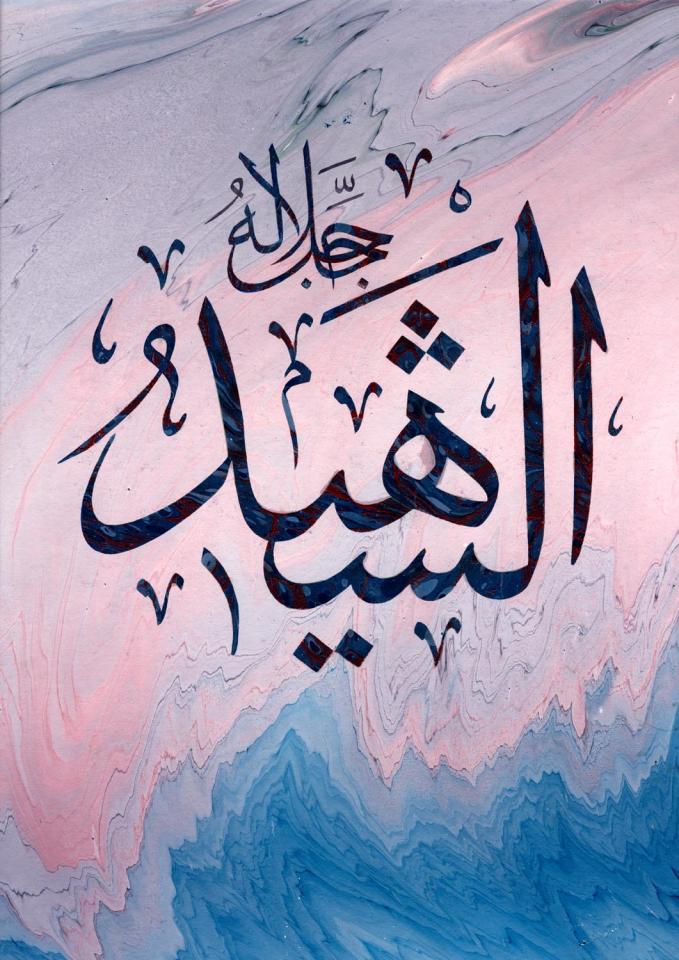 جل جلاله
الشهيد